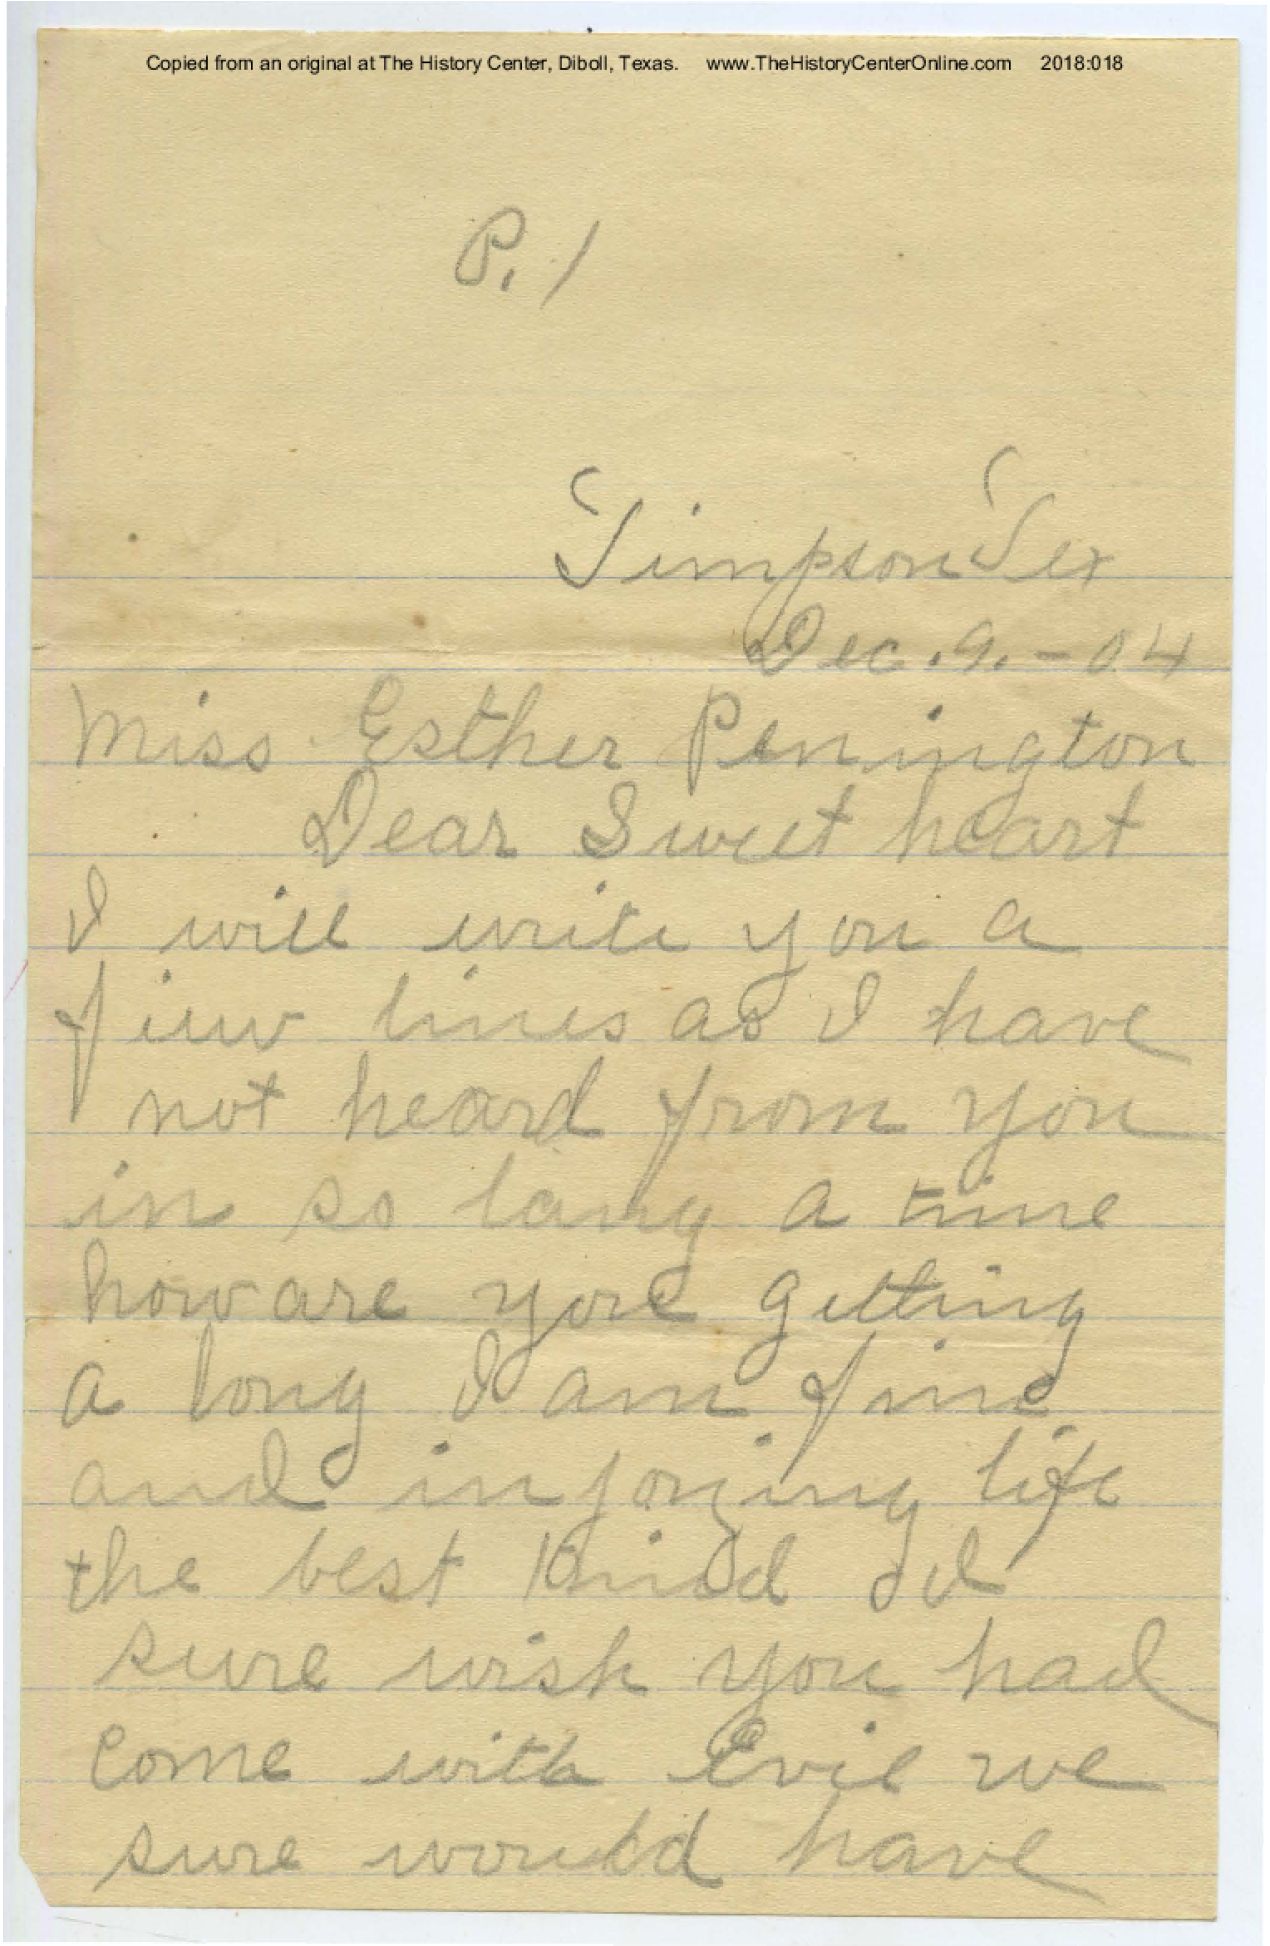 Copied from an original at The History Center, Diboll, Texas. www.TheHistoryCenterOnline.com 2018:018
P. 1
Timpson Tex
Dec. 9. - 04
Miss Esther Penington
Dear Sweet heart
I will write you a
fiew lines as I have
not heard from you
in so lang a time
how are you getting
a long I am fine
and injoying life
the best Kind I
sure wish you had
come with Evie we
sure would have